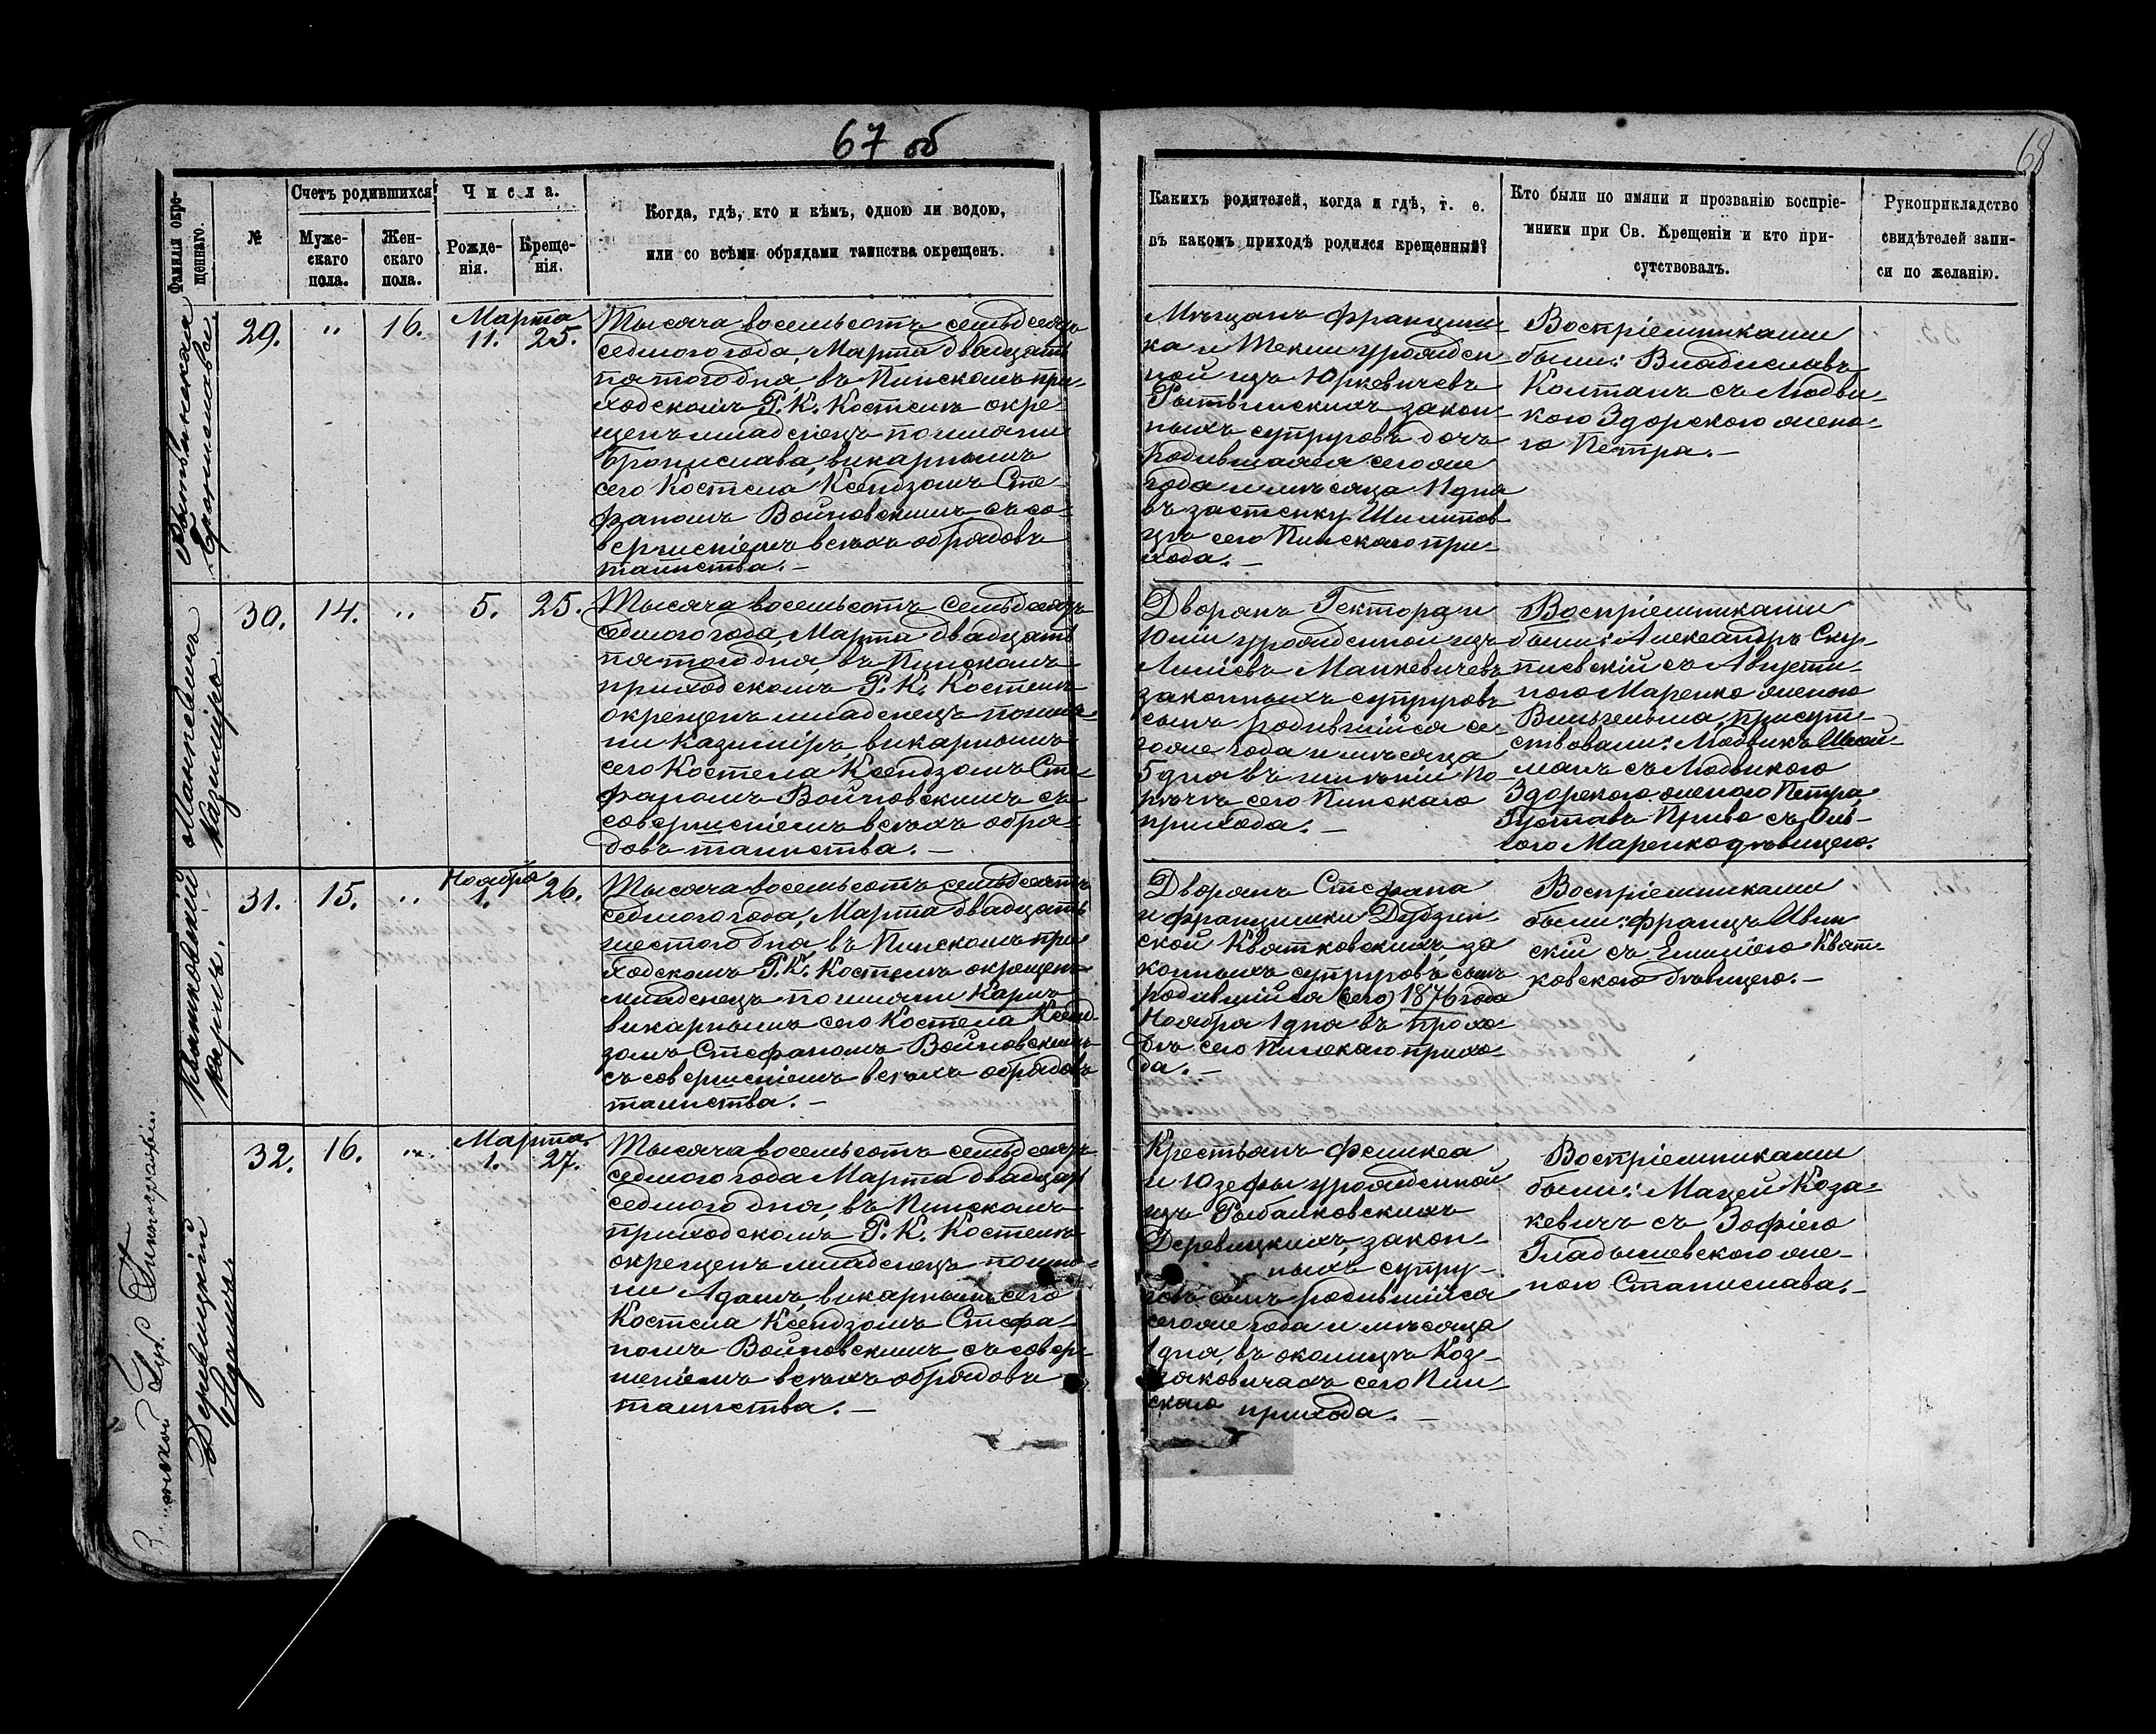 67 об
68
Фамилія окре-
щеннаго.
№
Счетъ родившихся
Муже-
скаго
пола.
Жен-
скаго
пола.
Числа.
Рожде-
нія.
Креще-
нія.
Когда, гдѣ, кто и кѣмъ, одною ли водою,
или со всѣми обрядами таинства окрещенъ.
Каких родителей, когда и гдѣ, т. е.
въ какомъ приходѣ родился крещенный?
Кто были по имяни и прозванію воспріе-
мники при Св. Крещеніи и кто при-
сутствовалъ.
Рукоприкладство
свидѣтелей запи-
си по желанію.
Рытвинская
Брониславва.
29.
"
16.
Марта
11. 25.
Тысяча восемьсотъ семьдесятъ
седмого года, Марта двадцать
пятого дня, въ Пинскомъ при-
ходскомъ Р. К. Костелѣ окре-
щенъ младенецъ по имяни
Бронислава, викарнымъ
сего Костела Ксендзомъ Сте-
фаномъ Войновскимъ съ со-
вершеніемъ всѣхъ обрядовъ
таинства.—
Мѣщанъ Франциш-
ка и Текли урожден-
ной изъ Юркевичевъ
Рытвинскихъ, закон-
ныхъ супруговъ дочь
родившаяся сегоже
года и мѣсяца 11 дня
въ застенку
сего Пинскаго при-
хода.—
Воспріемниками
были: Владиславъ
Колтанъ съ Людви-
кою Здорскою жено-
ю Петра.—
Манкевичъ
Казиміръ.
30.
14.
"
5. 25.
Тысяча восемьсотъ семьдесятъ
седмого года, Марта двадцать
пятого дня, въ Пинскомъ
приходскомъ Р. К. Костелѣ
окрещенъ младенецъ по имя-
ни Казиміръ, викарнымъ
сего Костела Ксендзомъ Сте-
фаномъ Войновскимъ съ
совершеніемъ всѣхъ обря-
довъ таинства.—
Дворянъ Гектора и
Юліи урожденной изъ
Манкевичевъ
законныхъ супруговъ
сынъ родившійся се-
гоже года и мѣсяца
5 дня въ имѣніи По-
рѣчъ сего Пинскаго
прихода.—
Воспріемниками
были: Александръ Ску-
пневскій съ Августи-
ною Маренко женою
Вильгельма, присут-
ствовали: Людвикъ
съ Людвикою
Здорскою женою Петра,
Густавъ съ
Маренко дѣвицею.
Квятковскій
Карлъ.
31.
15.
"
Ноября
1.
26.
Тысяча восемьсотъ семьдесятъ
седмого года, Марта двадцать
шестого дня, въ Пинскомъ при-
ходскомъ Р. К. Костелѣ окрещенъ
младенецъ по имяни Карлъ
викарнымъ сего Костела Ксенд-
зомъ Стефаномъ Войновскимъ
съ совершеніемъ всѣхъ обрядовъ
таинства.—
Дворянъ Стефана
и Францишки Дудзин-
ской Квятковскихъ, за-
конныхъ супруговъ сынъ
родившійся (сего) 1876 года
Ноября 1 дня въ
сего Пинскаго прихо-
да.—
Воспріемниками
были: Францъ Ивин-
скій съ Емиліею Квят-
ковскою дѣвицею.—
Деревицкій
Адамъ.
32.
16.
"
Марта
1. 27.
Тысяча восемьсотъ семьдесятъ
седмого года Марта двадцать
седмого дня, въ Пинскомъ
приходскомъ Р. К. Костелѣ
окрещенъ младенецъ по имя-
ни Адамъ, викарнымъ сего
Костела Ксендзомъ Стефа-
номъ Войновскимъ съ совер-
шеніемъ всѣхъ обрядовъ
таинства.—
Крестьянъ Феликса
и Юзефы урожденной
изъ Рыбалковскихъ
Деревицкихъ, закон-
ныхъ супру-
говъ сынъ родившійся
сегоже года и мѣсяца
1 дня, въ околицѣ Коз-
ляковичахъ сего Пин-
скаго прихода.—
Воспріемниками
были: Мацей Коза-
кевичъ съ Зофіею
Гладышевскою же-
ною Станислава.—